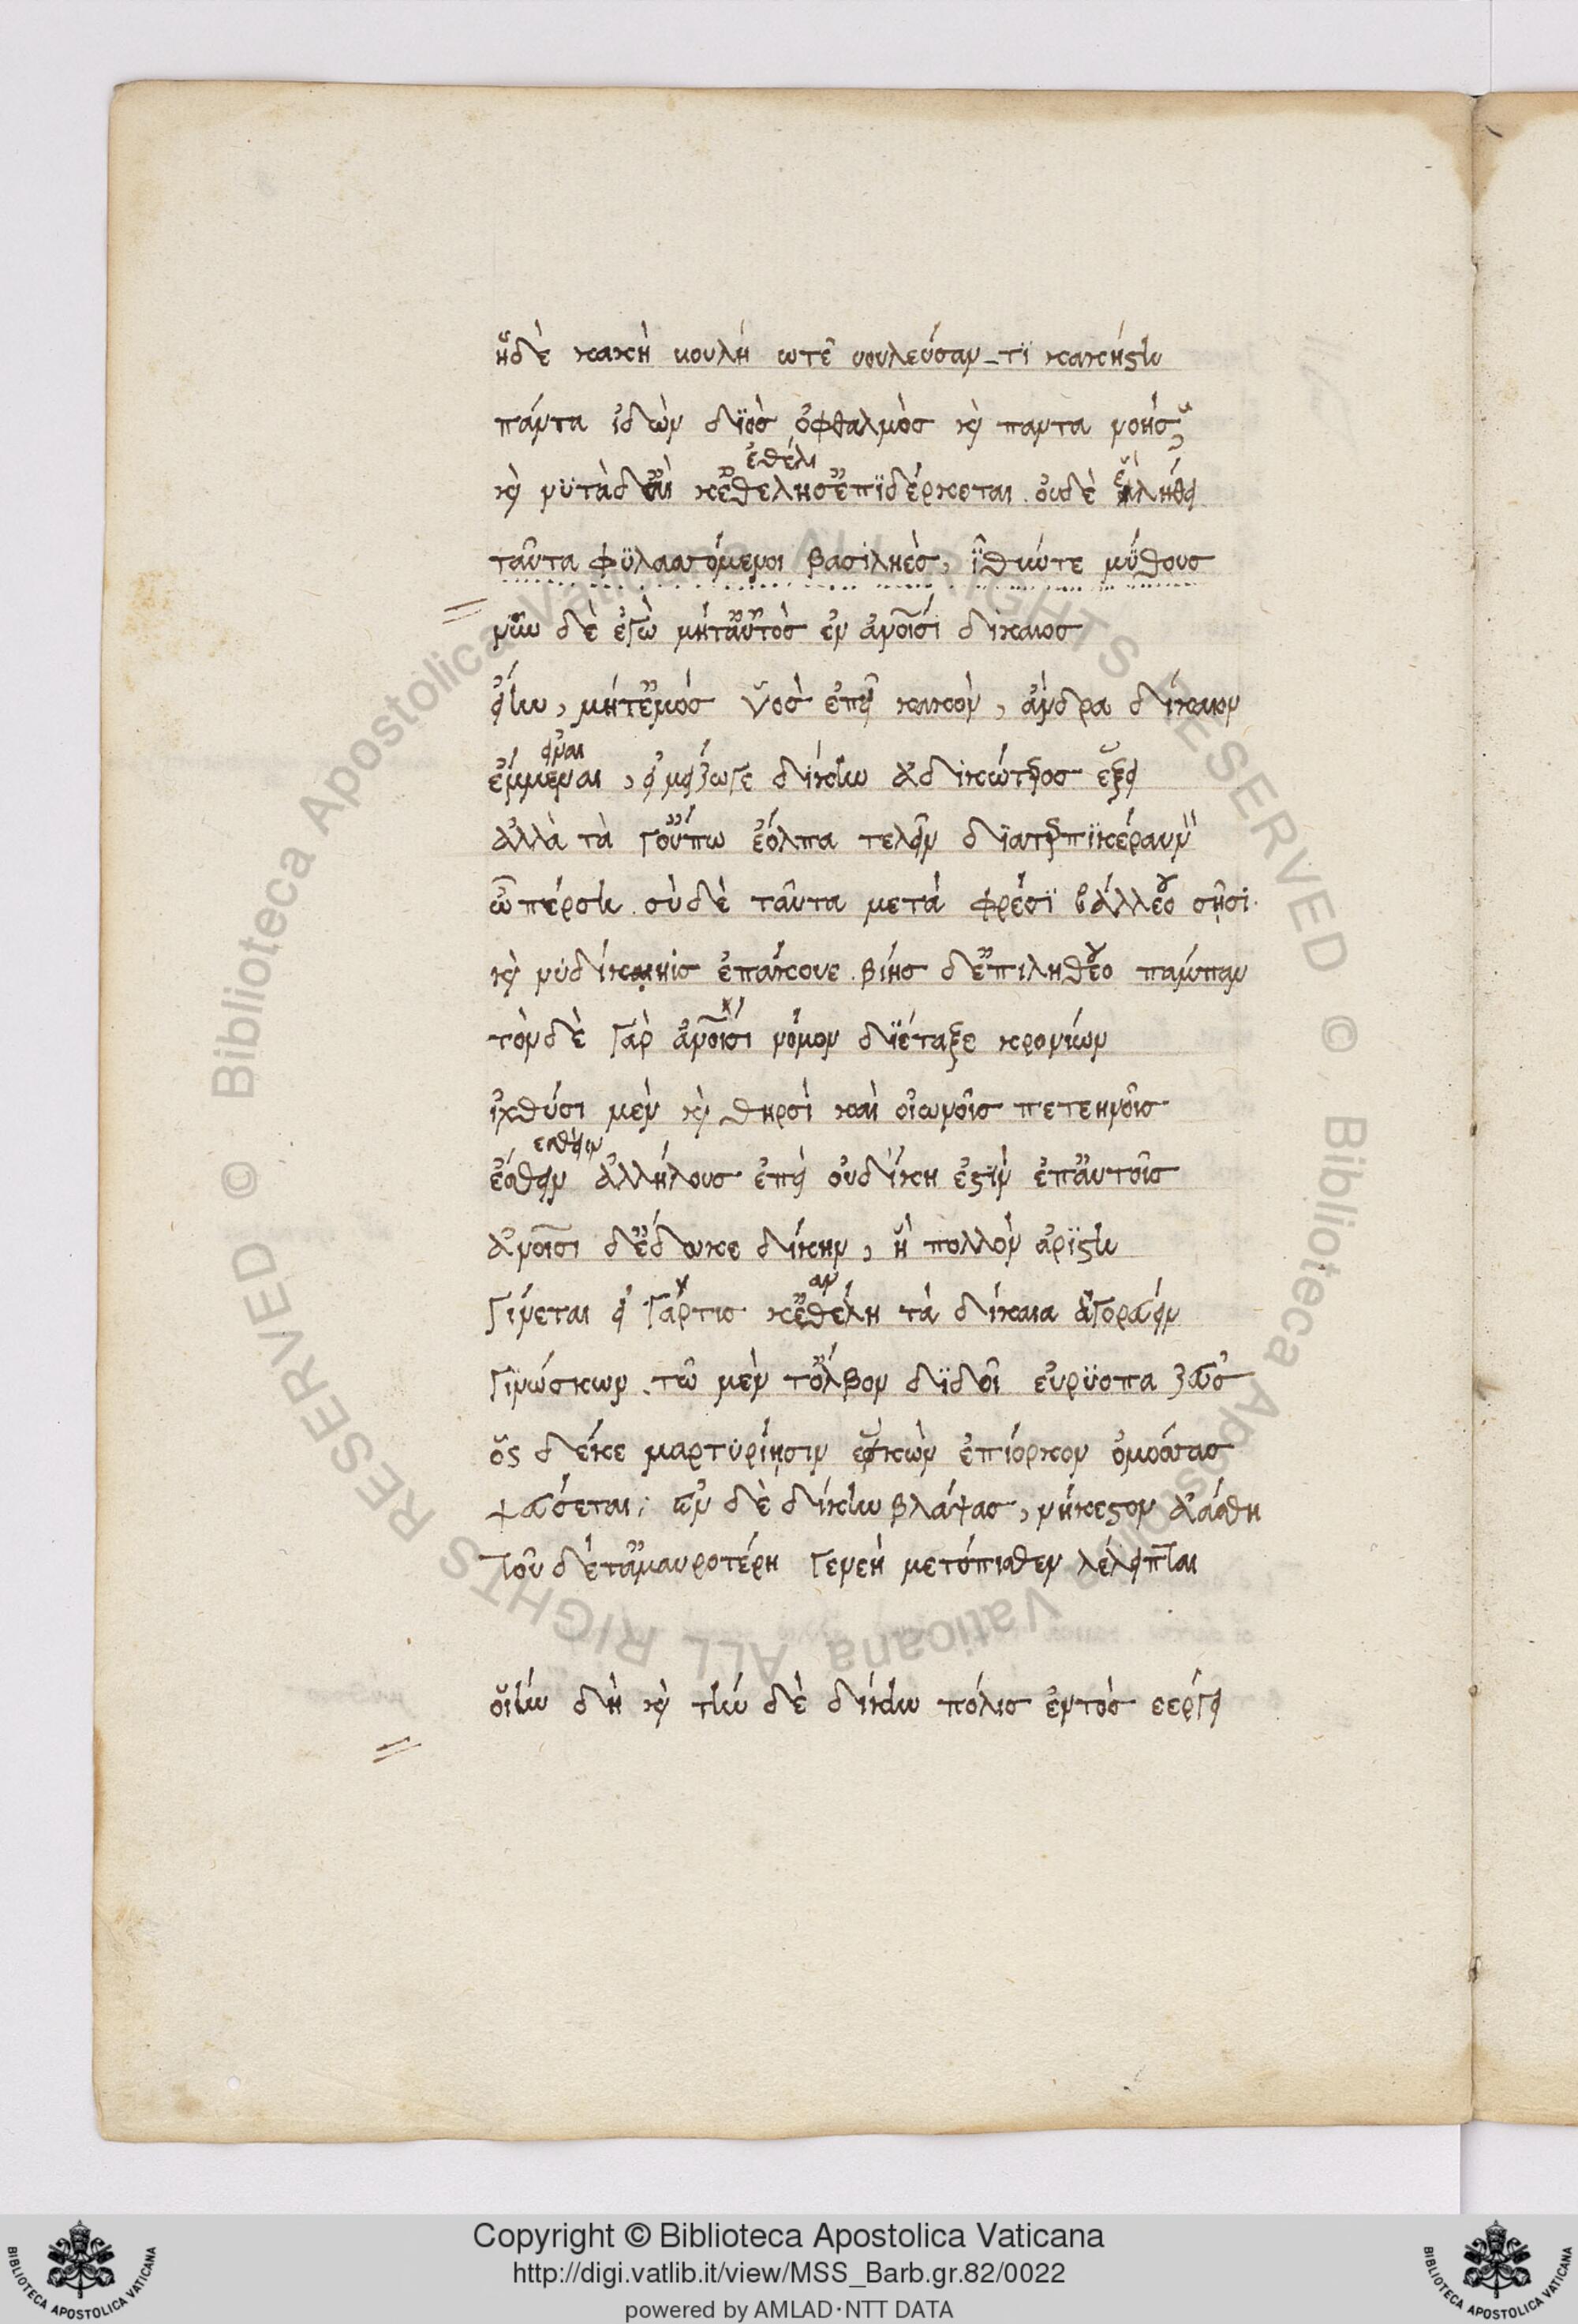 ἥδὲ κακὴ βουλὴ ωτῶ βουλεύσαν_τϊ κακήστη
πάντα ἰδὼν διὸς ὀφθαλμὸσ κὴ παντα νοήσασ
ἐθέλει
κὴ νϋτάδ' αἴ κ' ἐθελησ' ἐπϊδέρκεται. οὐδὲ ἑ λήθει
ταῦτα φϋλασσόμενοι βασιλῆεσ, ϊθύνετε μύθουσ
νῦν δὲ ἐγὼ μήτ' αὐτὸσ ἐν ἀν̅οισι δίκαιοσ
εἴην, μήτ' ἐμὸσ ὑὸσ ἐπεὶ κακὸν, ἄνδρα δίκαιον
εἶναι
ἔμμεναι, εἰ μείζωγε δίκην ἀδικώτεροσ ἕξει
ἀλλὰ τὰ γ' οὔπω ἐόλπα τελεῖν δϊατερπϊκέραυν
ὦ πέρση. σὺ δὲ ταῦτα μετὰ φρεσὶ βάλλεο σῇσι.
κὴ νὺ δίκησ ἐπάκουε. βίησ δ' ἐπιλήθεο πάμπαν
τὸν δὲ γὰρ ἀν̅οισι νόμον διέταξε κρονίων
ἰχθύσι μὲν κὴ θηρσὶ καὶ οἰωνοῖσ πετεηνοῖσ
εσθειν
ἔσθειν ἀλλήλουσ ἐπεὶ οὐ δίκη ἐστὶν ἐπ' αὐτοῖσ
ἀν̅οισι δ' ἔδωκε δίκην, ἣ πολλὸν ἀρίστη
αν
γίνεται εἰ γάρ τισ κ' ἐθέλη τὰ δίκαια ἀγορεύειν
γϊνώσκων. τῶ μὲν τ' ὄλβον δϊδοῖ εὐρύοπα ζεὺσ
ὅς δέ κε μαρτϋρίῃσιν ἑκὼν ἐπίορκον ὀμόσσασ
ψεύσεται, ἐν δὲ δίκην βλάψασ, νήκεστον ἀάσθη
τοῦ δέ τ' ἀμαυροτέρη γενεὴ μετόπισθεν λέλειπται
οἵην δὴ κὴ τὴν δὲ δίκην πόλισ ἐντὸσ εεργει
Copyright © Biblioteca Apostolica Vaticana
http://digi.vatlib.it/view/MSS_Barb.gr.82/0022
powered by AMLAD·NTT DATA